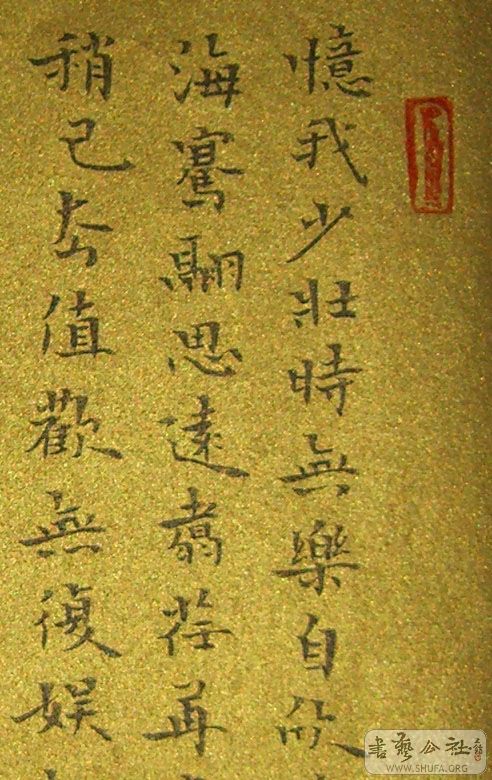 憶我少壯時無樂自欣
海騫翮思遠翥荏苒
稍已去值歡無復娛
書藝公社
WWW.SHUFA.ORG